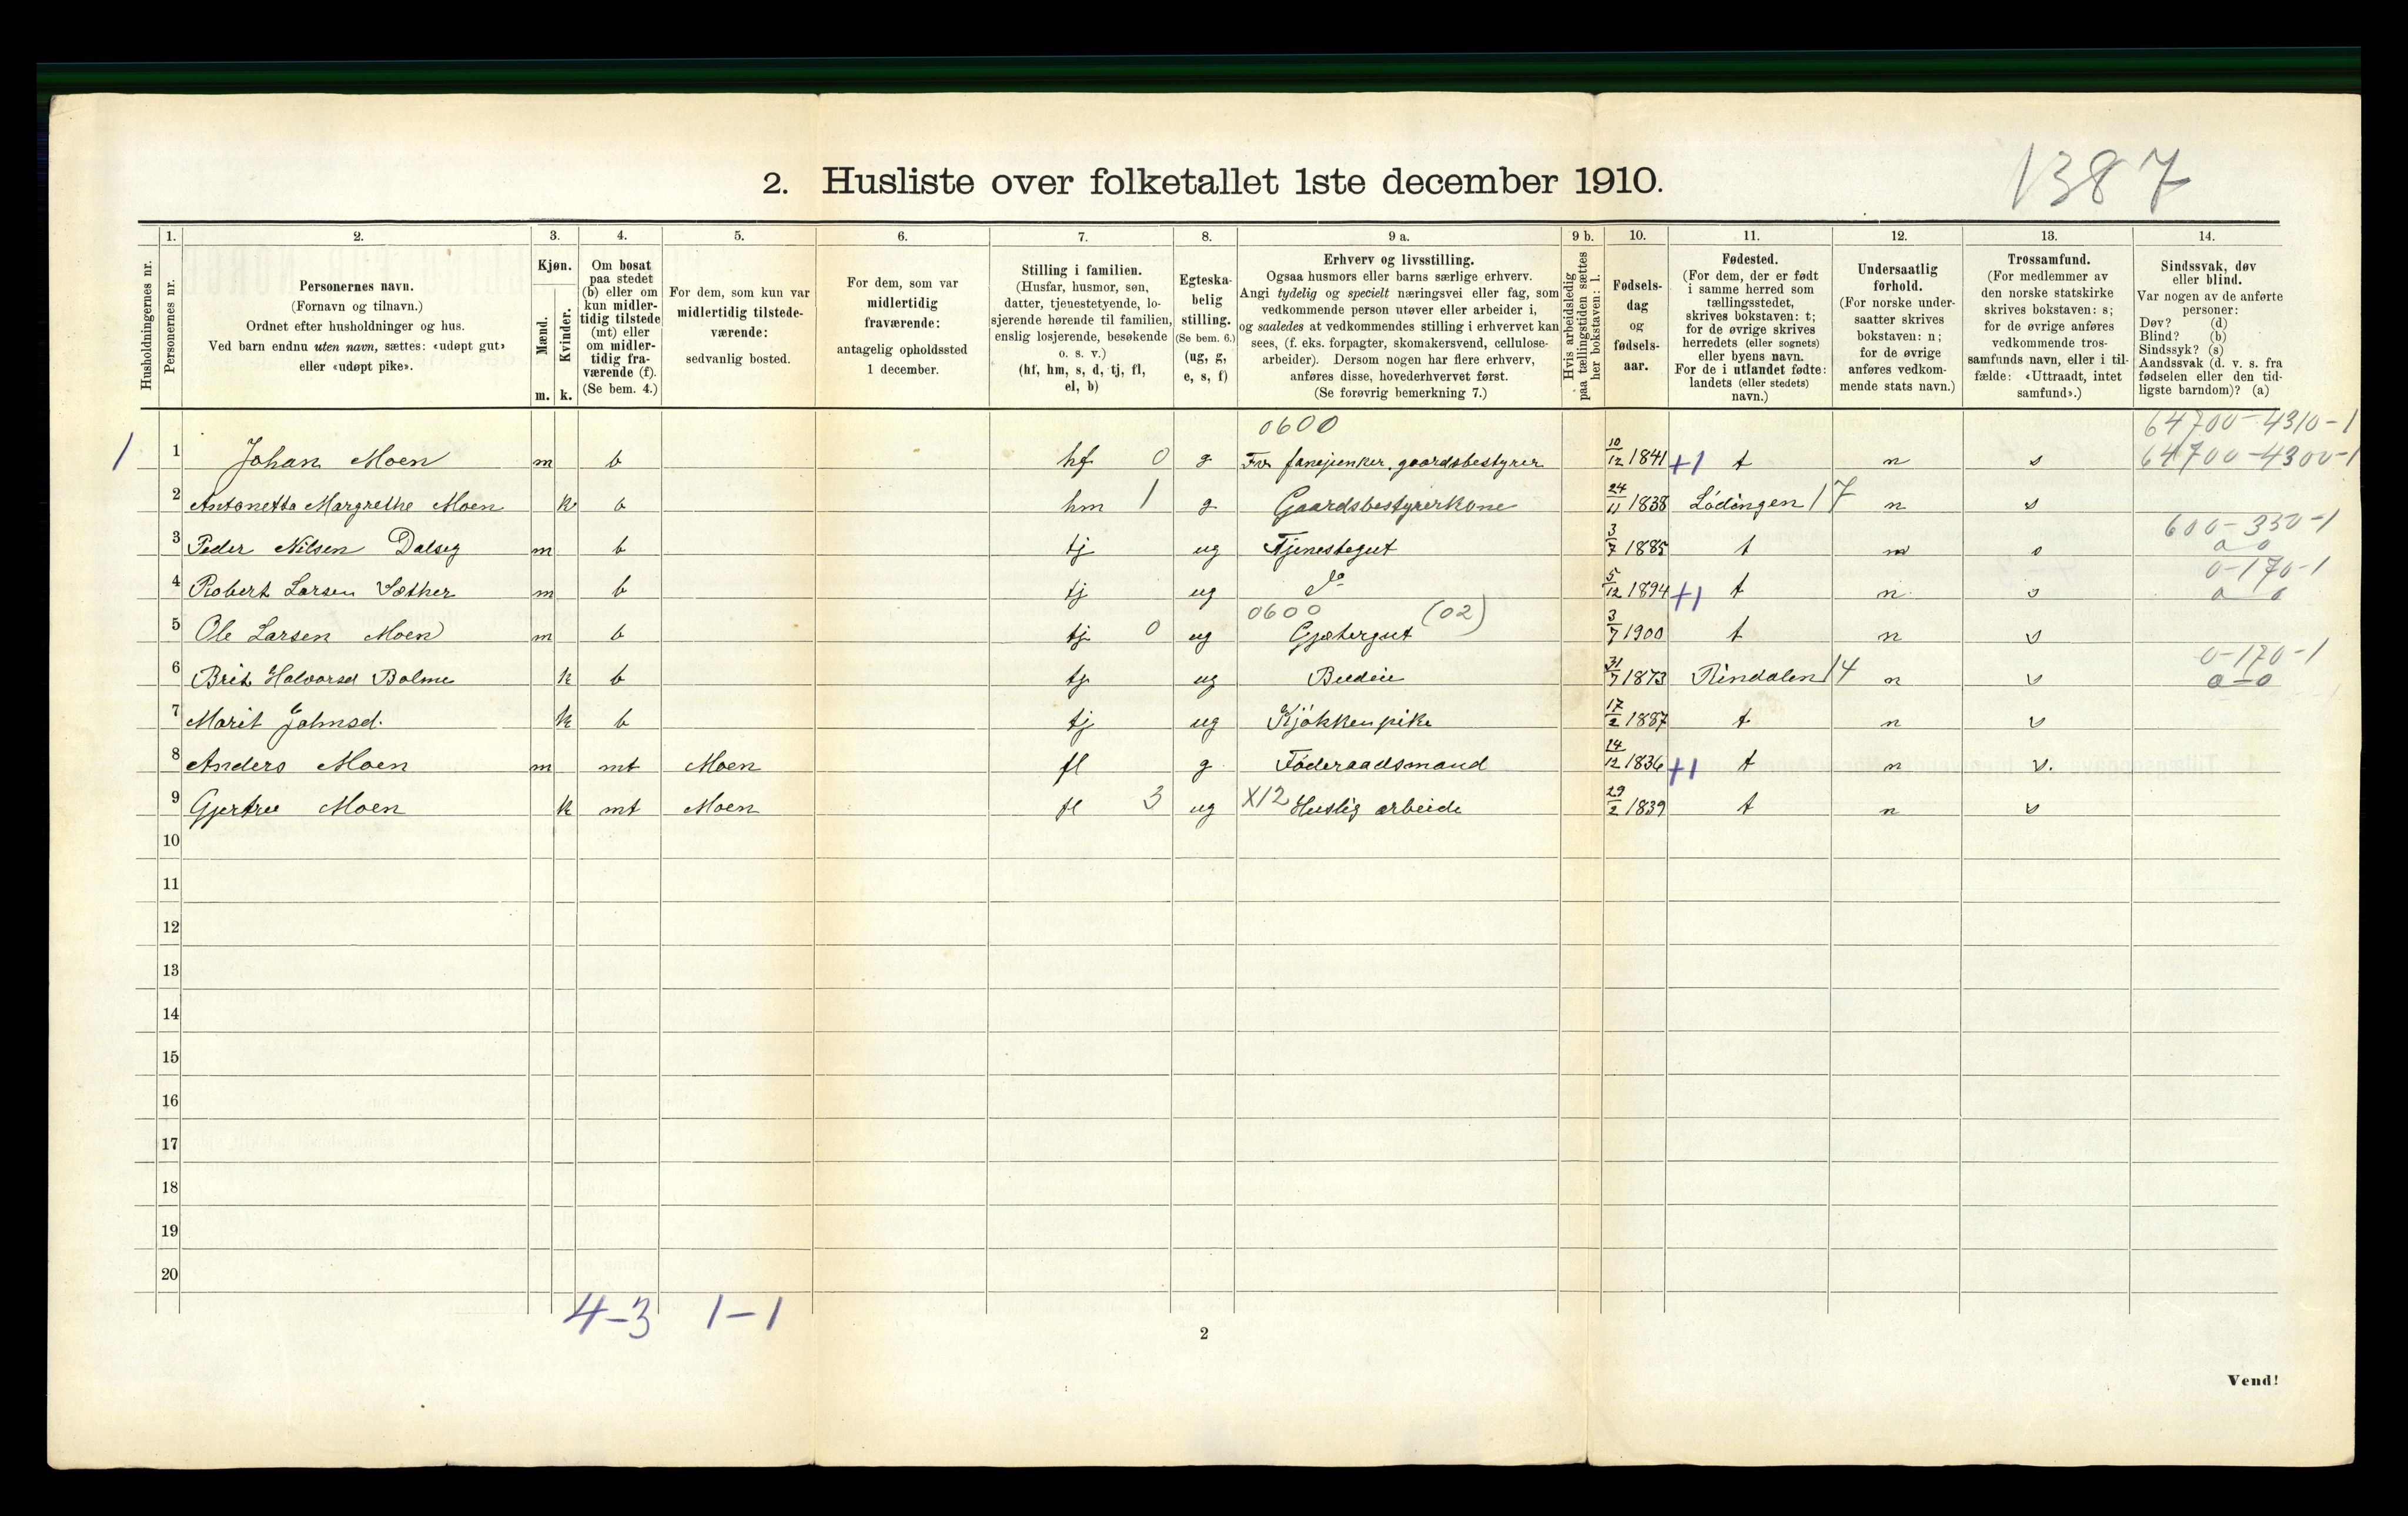 1387
2. Husliste over folketallet 1ste december 1910.
1. 2. 3. 4. 5. 6. 7. 8. 9 a. 9 b. 10. 11. 12. 13. 14.
Husholdningernes nr.
Personernes nr.
Personernes navn.
(Fornavn og tilnavn.)
Ordnet efter husholdninger og hus.
Ved barn endnu uten navn, sættes: «udøpt gut»
eller «udøpt pike».
Kjøn.
Mænd.
Kvinder.
m. k.
Om bosat
paa stedet
(b) eller om
kun midler-
tidig tilstede
(mt) eller
om midler-
tidig fra-
værende (f).
(Se bem. 4.)
For dem, som kun var
midlertidig tilstede-
værende:
sedvanlig bosted.
For dem, som var
midlertidig
fraværende:
antagelig opholdssted
1 december.
Stilling i familien.
(Husfar, husmor, søn,
datter, tjenestetyende, lo-
sjerende hørende til familien,
enslig losjerende, besøkende
o. s. v.)
(hf, hm, s, d, tj, fl,
el, b)
Egteska-
belig
stilling.
(Se bem. 6.)
(ug, g,
e, s, f)
Erhverv og livsstilling.
Ogsaa husmors eller barns særlige erhverv.
Angi tydelig og specielt næringsvei eller fag, som
vedkommende person utøver eller arbeider i,
og saaledes at vedkommendes stilling i erhvervet kan
sees, (f. eks. forpagter, skomakersvend, cellulose-
arbeider). Dersom nogen har flere erhverv,
anføres disse, hovederhvervet først.
(Se forøvrig bemerkning 7.)
Hvis arbeidsledig
paa tællingstiden sættes
her bokstaven: l.
Fødsels-
dag
og
fødsels-
aar.
Fødested.
(For dem, der er født
i samme herred som
tællingsstedet,
skrives bokstaven: t;
for de øvrige skrives
herredets (eller sognets)
eller byens navn.
For de i utlandet fødte:
landets (eller stedets)
navn.)
Undersaatlig
forhold.
(For norske under-
saatter skrives
bokstaven: n;
for de øvrige
anføres vedkom-
mende stats navn.)
Trossamfund.
(For medlemmer av
den norske statskirke
skrives bokstaven: s;
for de øvrige anføres
vedkommende tros-
samfunds navn, eller i til-
fælde: «Uttraadt, intet
samfund».)
Sindssvak, døv
eller blind.
Var nogen av de anførte
personer:
Døv? (d)
Blind? (b)
Sindssyk? (s)
Aandssvak (d. v. s. fra
fødselen eller den tid-
ligste barndom)? (a)
0600 64700-4310-1
1 1 Johan Moen m b hf 0 g Fv. fanejunker, gaardsbestyrer 10/12 1841 +1 t n s 64700-4300-1
2 Antonetta Margrethe Moen k b hm 1 g Gaardsbestyrerkone 24/11 1838 Lödingen 17 n s
600-350-1
3 Peder Nilsen Dalseg m b tj ug Tjenestegut 3/7 1885 t n s 0 0
0-170-1
4 Robert Larsen Sæther m b tj ug do 5/12 1894 +1 t n s 0 0
0600 (02)
5 Ole Larsen Moen m b tj 0 ug Gjætergut 3/7 1900 t n s
0-170-1
6 Brit Halvorsd Bolme k b tj ug Budeie 31/7 1873 Rindalen 14 n s 0-0
7 Marit Johnsd. k b tj ug Kjøkkenpike 17/2 1887 t n s
8 Anders Moen m mt Moen fl g Føderaadsmand 14/12 1836 +1 t n s.
9 Gjertru Moen k mt Moen fl 3 ug X12 Huslig arbeide 29/2 1839 t n s
10
11
12
13
14
15
16
17
18
19
20
4-3 1-1
2
Vend!